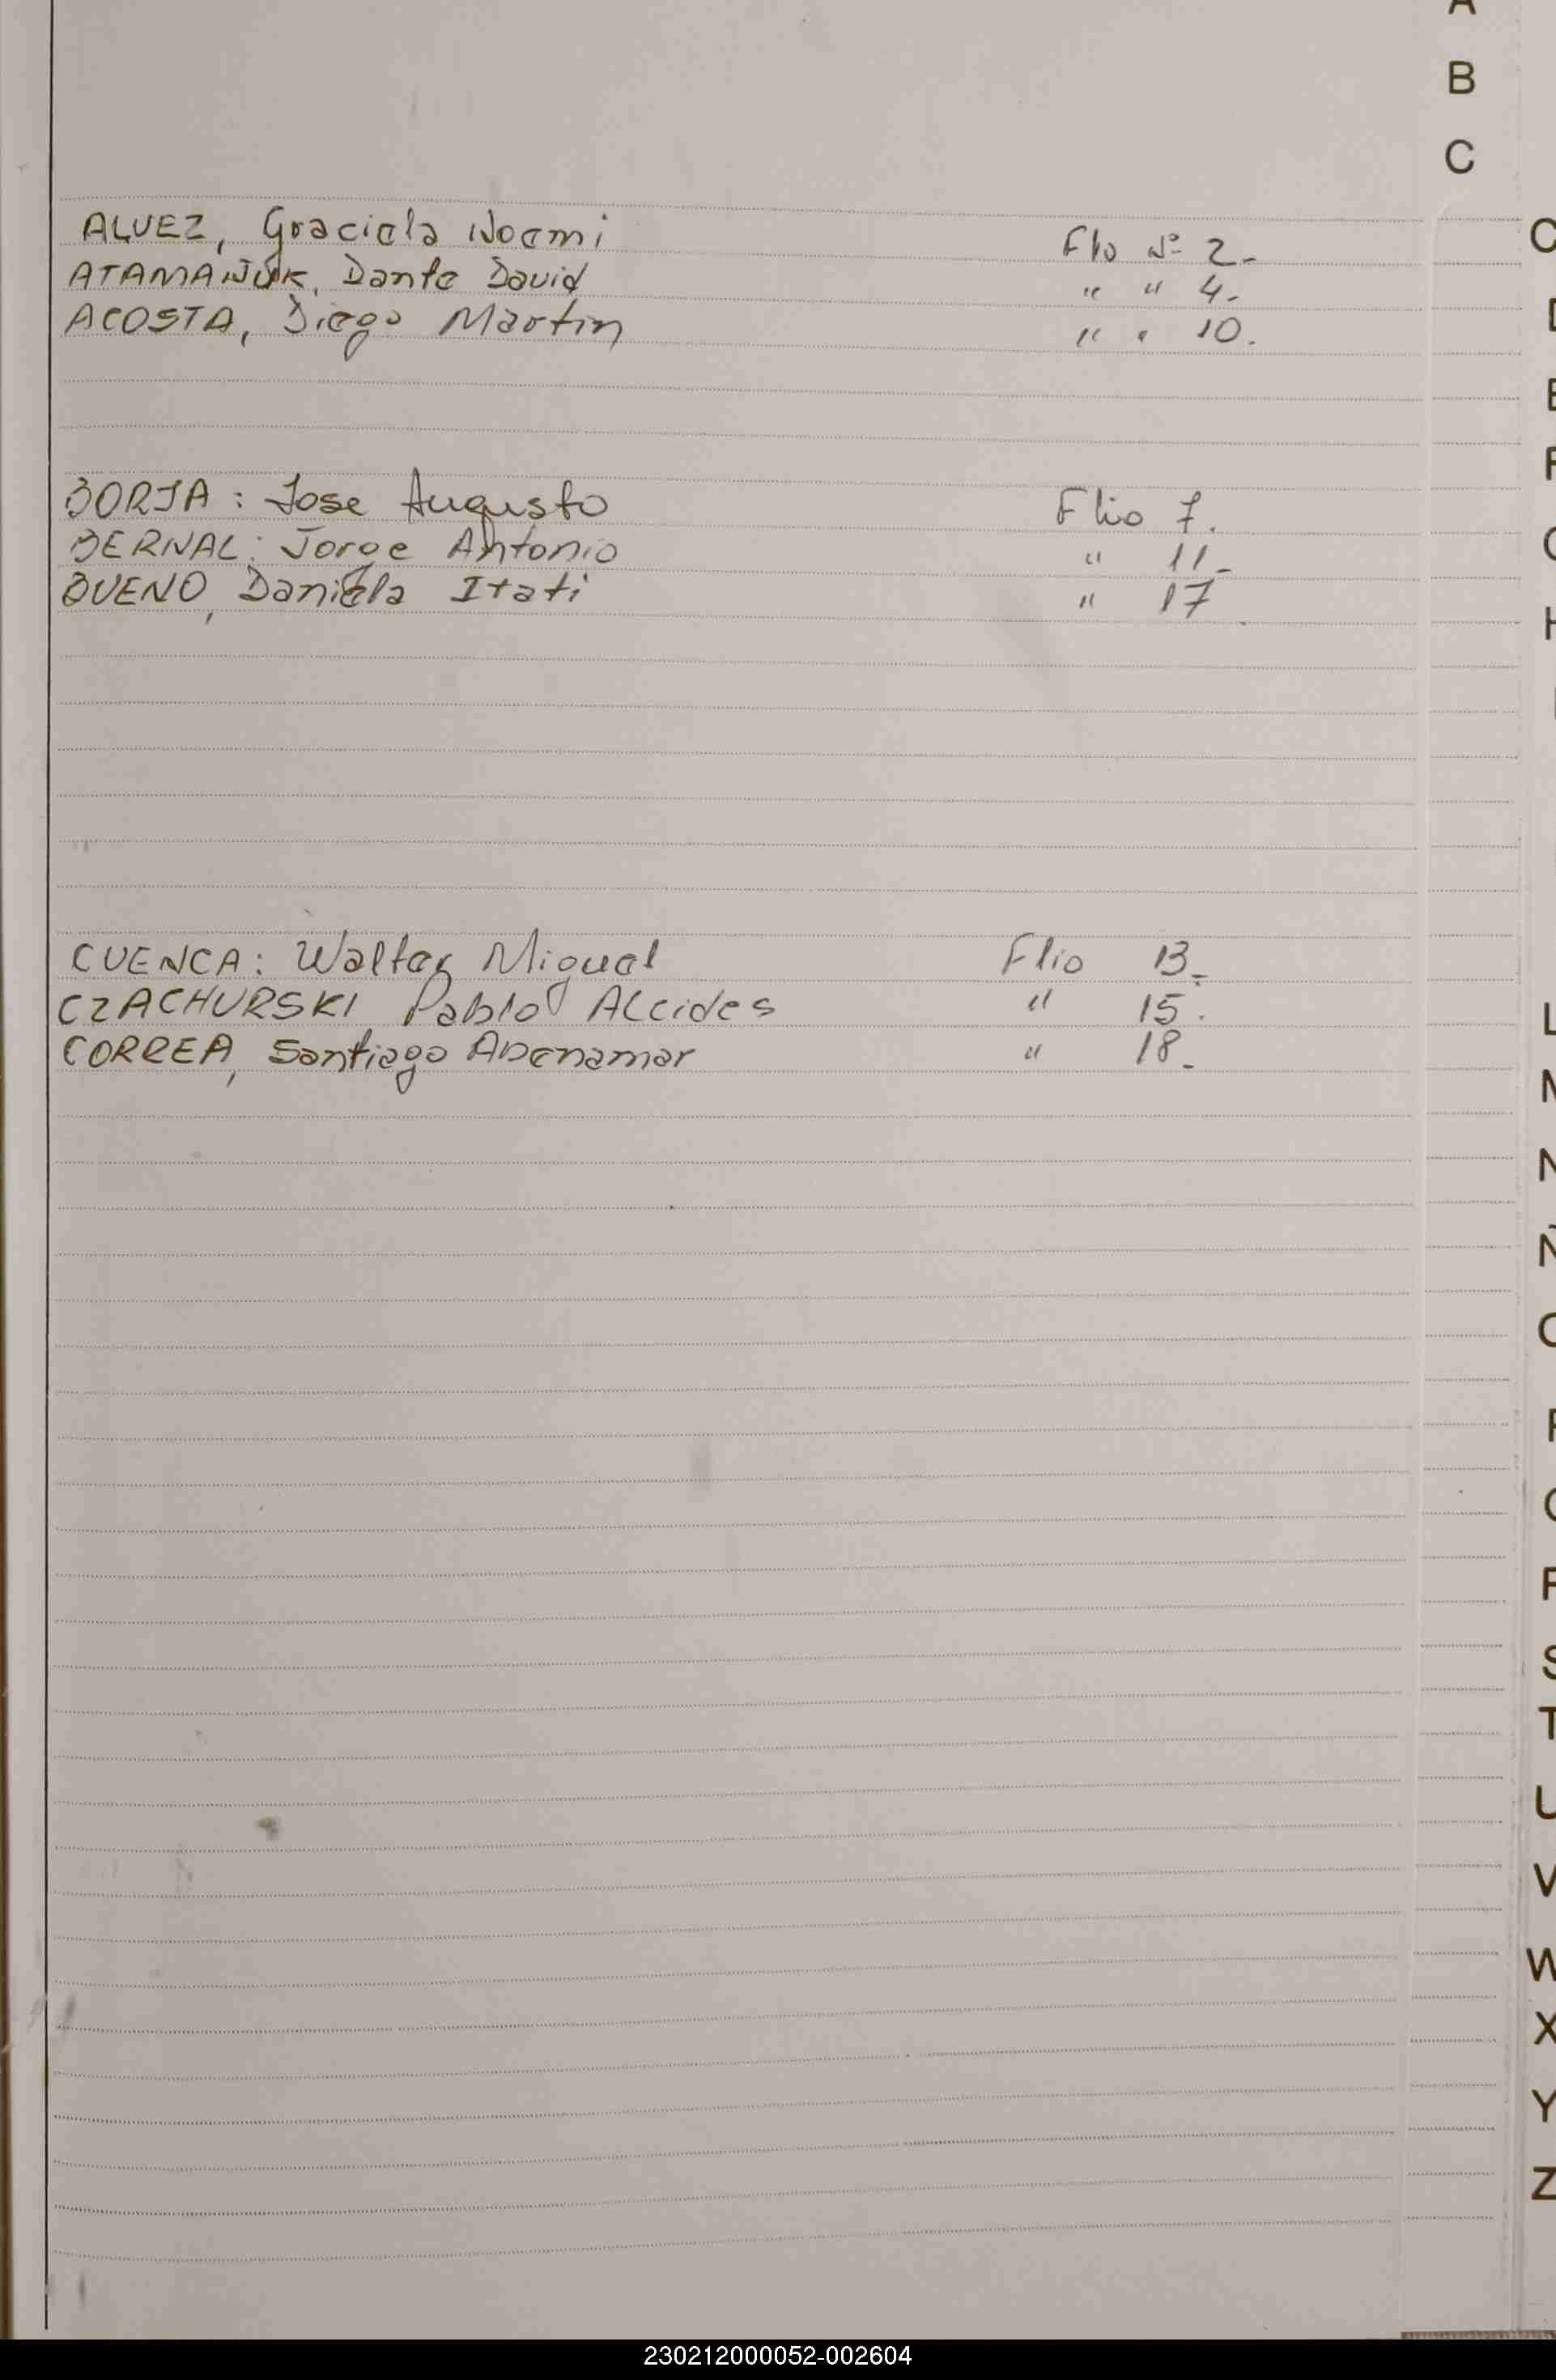 A
B
C
ALVEZ, Graciela Noemi Flo Nº 2.-
ATAMAÑUK, Dante David " " 4.-
ACOSTA, Diego Martin " " 10.
BORJA: Jose Augusto Flio 7.
BERNAL: Jorge Antonio " 11.-
BUENO, Daniela Itati " 17
CUENCA: Walter Miguel Flio 13.-
CZACHURSKI Pablo Alcides " 15.
CORREA, Santiago Abenamar " 18.-
L
M
N
Ñ
T
U
V
W
X
Y
Z
230212000052-002604